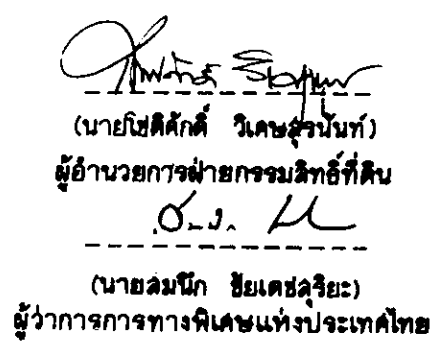 (นายโชติศักดิ์ วิเศษสุรนันท์)
ผู้อำนวยการฝ่ายกรรมสิทธิ์ที่ดิน
(นายสมนึก ชัยเดชสุริยะ)
ผู้ว่าการการทางพิเศษแห่งประเทศไทย